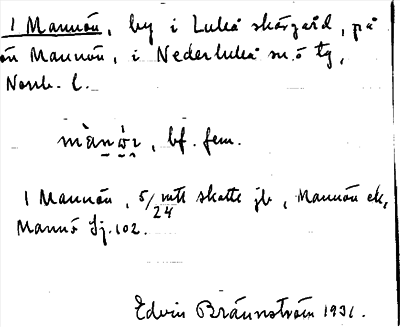 1 Mannön, by i Luleå skärgård, på
ön Mannön, i Nederluleå sn. o tg,
Norrb. l.
bf. fem.
1 Mannön, 5/24 mtl skatte jb, Mannön ek,
Mannö Jj. 102.
Edvin Brännström 1931.